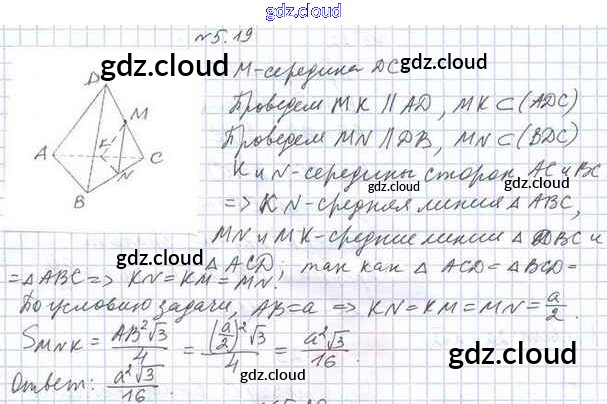 gdz.cloud
№5.19
gdz.cloud
M-середина DC
Проведем MK || AD, MK ⊂ (ADC)
gdz.cloud
Проведем MN || DB, MN ⊂ (BDC)
K и N-середины сторон AC и BC
gdz.cloud
=> KN-средняя линия △ ABC,
MN и MK-средние линии △ DBC и
△ ACD; так как △ ACD = △ BCD =
= △ ABC => KN = KM = MN.
gdz.cloud
По условию задачи, AB = a => KN = KM = MN = a/2.
S MNK = AB²√3/4 = (a/2)²√3/4 = a²√3/16.
gdz.cloud
gdz.cloud
Ответ: a²√3/16.
D
M
A
K
C
N
B